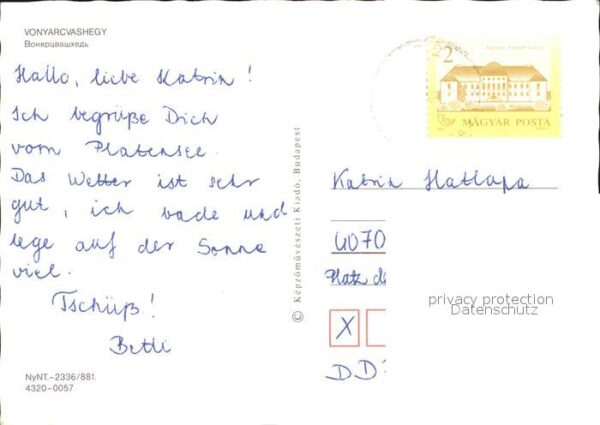 VONYARCVASHEGY
Вонярцвашхедь
Hallo, liebe Katrin!
Ich begrüße Dich
vom Platensee.
Das Wetter ist sehr
gut, ich bade und
lege auf der Sonne
viel.
Tschüß!
Betti
NyNT.–2336/881.
4320–0057
© Képzőművészeti Kiadó, Budapest
2
MAGYAR POSTA
Katrin Hatlapa
4070
Platz d
privacy protection
Datenschutz
X
DD